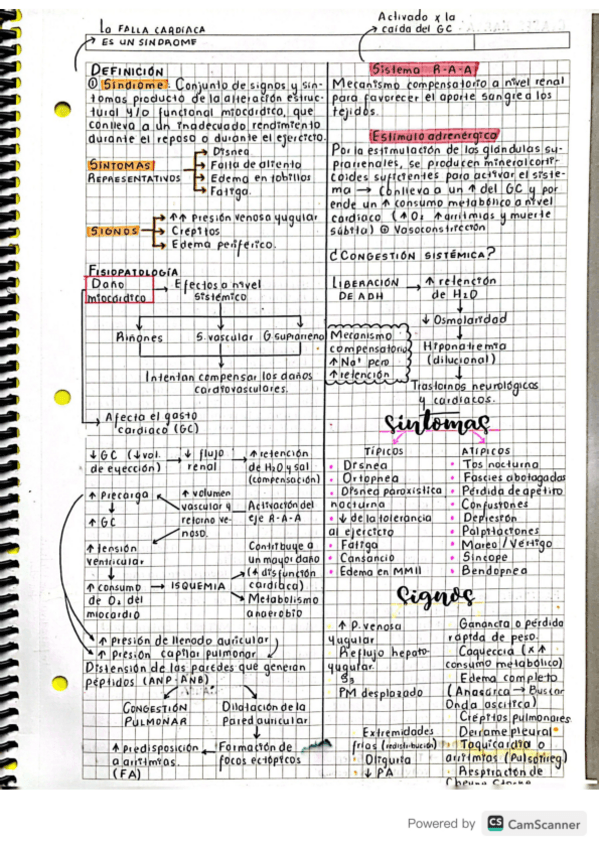 La FALLA CARDÍACA
→ ES UN SÍNDROME
Activado x la
→ caída del GC
DEFINICIÓN
Síndrome: Conjunto de signos y sín-
tomas producto de la alteración estruc-
tural y/o funcional miocárdica, que
conlleva a un inadecuado rendimiento
durante el reposo o durante el ejercicio.
SÍNTOMAS
REPRESENTATIVOS
→ Disnea
→ Falla de aliento
→ Edema en tobillos
→ Fatiga.
SIGNOS
→ ↑↑ Presión venosa yugular
→ Crepitos
→ Edema periférico.
FISIOPATOLOGÍA
Daño
miocárdico
→ Efectos a nivel
sistémico
Riñones S. vascular G suprarreno
Intentan compensar los daños
cardiovasculares.
→ Afecta el gasto
cardíaco (GC)
↓ GC (↓ vol. → ↓ flujo → ↑ retención
de eyección) renal de H2O y sal
(compensación)
↑ Precarga ↑ volumen
vascular y Activación del
↑ GC retorno ve- eje R-A-A
noso.
↑ tensión
ventricular
Contribuye a
un mayor daño
(↑ disfunción
cardíaca)
↑ consumo → ISQUEMIA
de O2 del
miocardio
Metabolismo
anaerobio
↑ Presión de llenado auricular
↑ Presión capilar pulmonar
Distensión de las paredes que generan
péptidos (ANP-ANB)
CONGESTIÓN
PULMONAR
Dilatación de la
Pared auricular
↑ Predisposición ← Formación de
a arritmias. focos ectópicos
(FA)
Sistema R-A-A
Mecanismo compensatorio a nivel renal
para favorecer el aporte sangre a los
tejidos.
Estímulo adrenérgico
Por la estimulación de las glándulas su-
prarrenales, se producen mineralcorti-
coides suficientes para activar el siste-
ma → Conlleva a un ↑ del GC y por
ende un ↑ consumo metabólico a nivel
cardíaco (↑ O2 ↑ arritmias y muerte
súbita) Vasoconstricción
¿CONGESTIÓN SISTÉMICA?
LIBERACIÓN → ↑ retención
DE ADH de H2O
↓ Osmolaridad
Hiponatremia
(dilucional)
Mecanismo
compensatorio
↑ Na+ pero
↑ retención
Trastornos neurológicos
y cardíacos.
Síntomas
TÍPICOS
• Disnea
• Ortopnea
• Disnea paroxística
nocturna
• ↓ de la tolerancia
al ejercicio
• Fatiga
• Cansancio
• Edema en MMII
ATÍPICOS
• Tos nocturna
• Fascies abotagadas
• Pérdida de apetito
• Confusiones
• Depresión
• Palpitaciones
• Mareo / Vértigo
• Síncope
• Bendopnea
Signos
↑ P. venosa
yugular
Reflujo hepato-
yugular.
S3
PM desplazado
Extremidades
frías (redistribución)
Oliguria
↓ PA
Ganancia o pérdida
rápida de peso.
Caqueccia (x ↑
consumo metabólico)
Edema completo
(Anasarca → Buscar
Onda ascítica)
Crépitos pulmonares
Derrame pleural
Taquicardia o
arritmias (Pulso irreg)
Respiración de
Cheyne Stokes
Powered by CS CamScanner